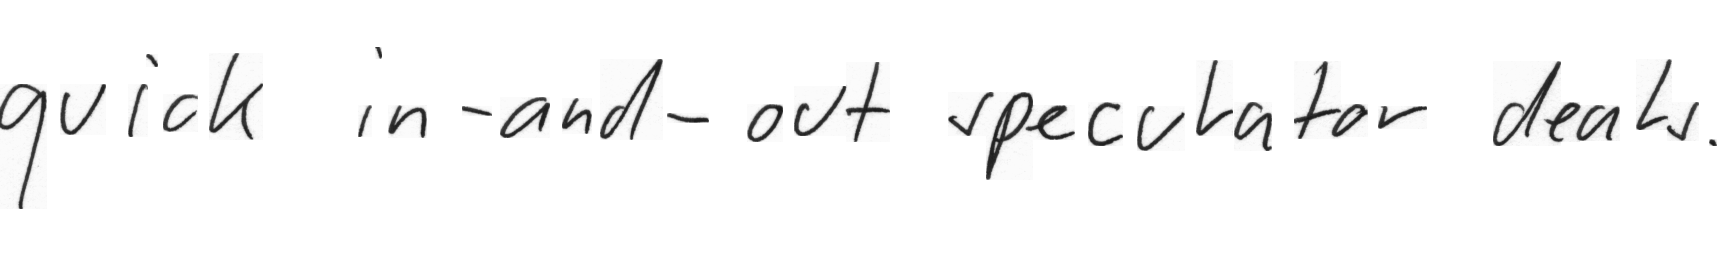 quick in-and-out speculator deals.